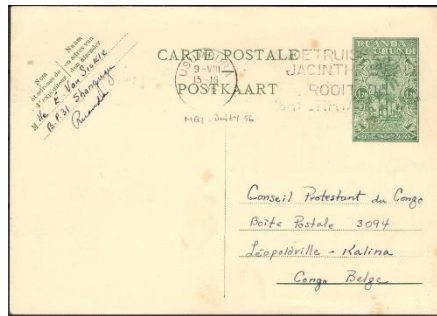 Nom
et adresse de
l'expéditeur
Naam
en adres van
den afzender
M. Me E. Van Sickle
B.P. 31 Shangugu
Ruanda
CARTE POSTALE
POSTKAART
USUMBURA
9-VIII
15-16
DETRUIS
JACINTH
ROOIT
RUANDA
URUNDI
Conseil Protestant du Congo
Boîte Postale 3094
Léopoldville - Kalina
Congo Belge